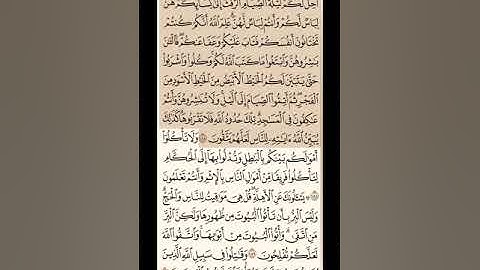 أُحِلَّ لَكُمْ لَيْلَةَ ٱلصِّيَامِ ٱلرَّفَثُ إِلَىٰ نِسَآئِكُمْ هُنَّ
لِبَاسٌ لَّكُمْ وَأَنتُمْ لِبَاسٌ لَّهُنَّ عَلِمَ ٱللَّهُ أَنَّكُمْ كُنتُمْ
تَخْتَانُونَ أَنفُسَكُمْ فَتَابَ عَلَيْكُمْ وَعَفَا عَنكُمْ فَٱلْـَٰٔنَ
بَـٰشِرُوهُنَّ وَٱبْتَغُوا۟ مَا كَتَبَ ٱللَّهُ لَكُمْ وَكُلُوا۟ وَٱشْرَبُوا۟
حَتَّىٰ يَتَبَيَّنَ لَكُمُ ٱلْخَيْطُ ٱلْأَبْيَضُ مِنَ ٱلْخَيْطِ ٱلْأَسْوَدِ مِنَ
ٱلْفَجْرِ ثُمَّ أَتِمُّوا۟ ٱلصِّيَامَ إِلَى ٱلَّيْلِ وَلَا تُبَـٰشِرُوهُنَّ وَأَنتُمْ
عَـٰكِفُونَ فِى ٱلْمَسَـٰجِدِ تِلْكَ حُدُودُ ٱللَّهِ فَلَا تَقْرَبُوهَا كَذَٰلِكَ
يُبَيِّنُ ٱللَّهُ ءَايَـٰتِهِۦ لِلنَّاسِ لَعَلَّهُمْ يَتَّقُونَ ١٨٧ وَلَا تَأْكُلُوٓا۟
أَمْوَٰلَكُم بَيْنَكُم بِٱلْبَـٰطِلِ وَتُدْلُوا۟ بِهَآ إِلَى ٱلْحُكَّامِ
لِتَأْكُلُوا۟ فَرِيقًا مِّنْ أَمْوَٰلِ ٱلنَّاسِ بِٱلْإِثْمِ وَأَنتُمْ تَعْلَمُونَ
١٨٨ يَسْـَٔلُونَكَ عَنِ ٱلْأَهِلَّةِ قُلْ هِىَ مَوَٰقِيتُ لِلنَّاسِ وَٱلْحَجِّ
وَلَيْسَ ٱلْبِرُّ بِأَن تَأْتُوا۟ ٱلْبُيُوتَ مِن ظُهُورِهَا وَلَـٰكِنَّ ٱلْبِرَّ
مَنِ ٱتَّقَىٰ وَأْتُوا۟ ٱلْبُيُوتَ مِنْ أَبْوَٰبِهَا وَٱتَّقُوا۟ ٱللَّهَ
لَعَلَّكُمْ تُفْلِحُونَ ١٨٩ وَقَـٰتِلُوا۟ فِى سَبِيلِ ٱللَّهِ ٱلَّذِينَ